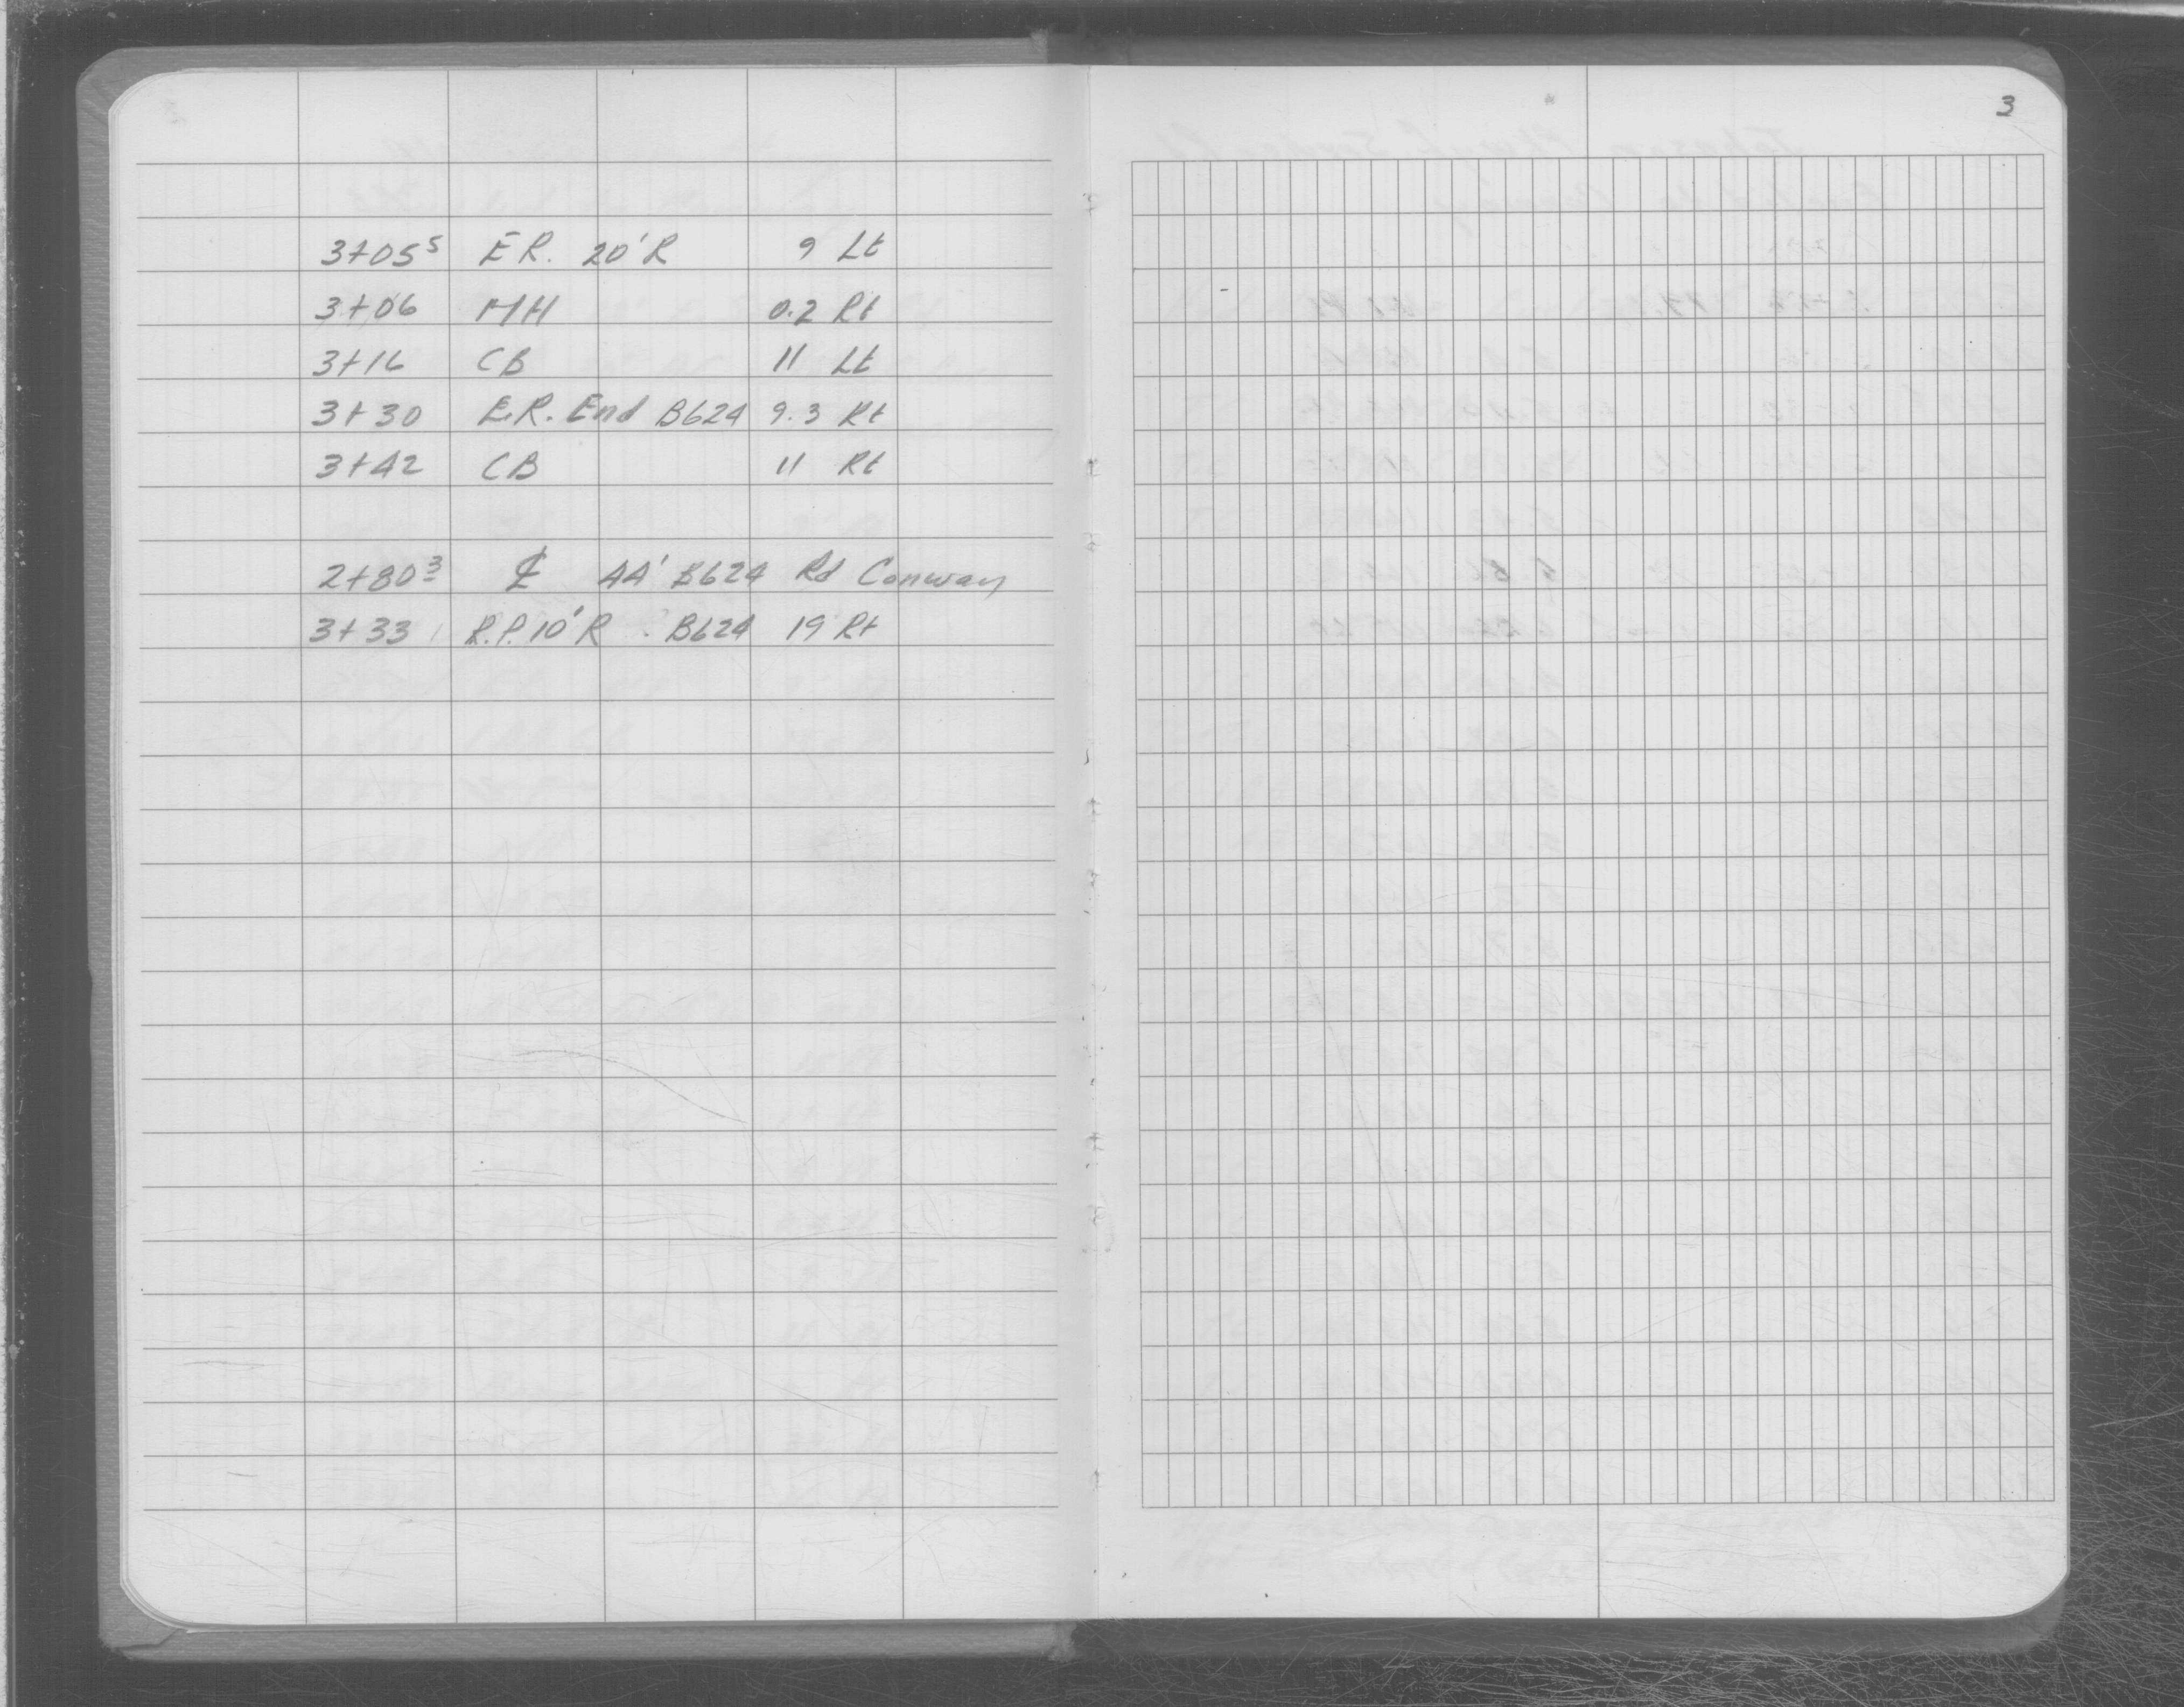 3+05⁵ E R. 20' R 9 Lt
3+06 MH 0.2 Rt
3+16 CB 11 Lt
3+30 E.R. End B624 9.3 Rt
3+42 CB 11 Rt
2+80³ ℄ 44' B624 Rd Conway
3+33 R.P. 10' R. B624 19 Rt
3